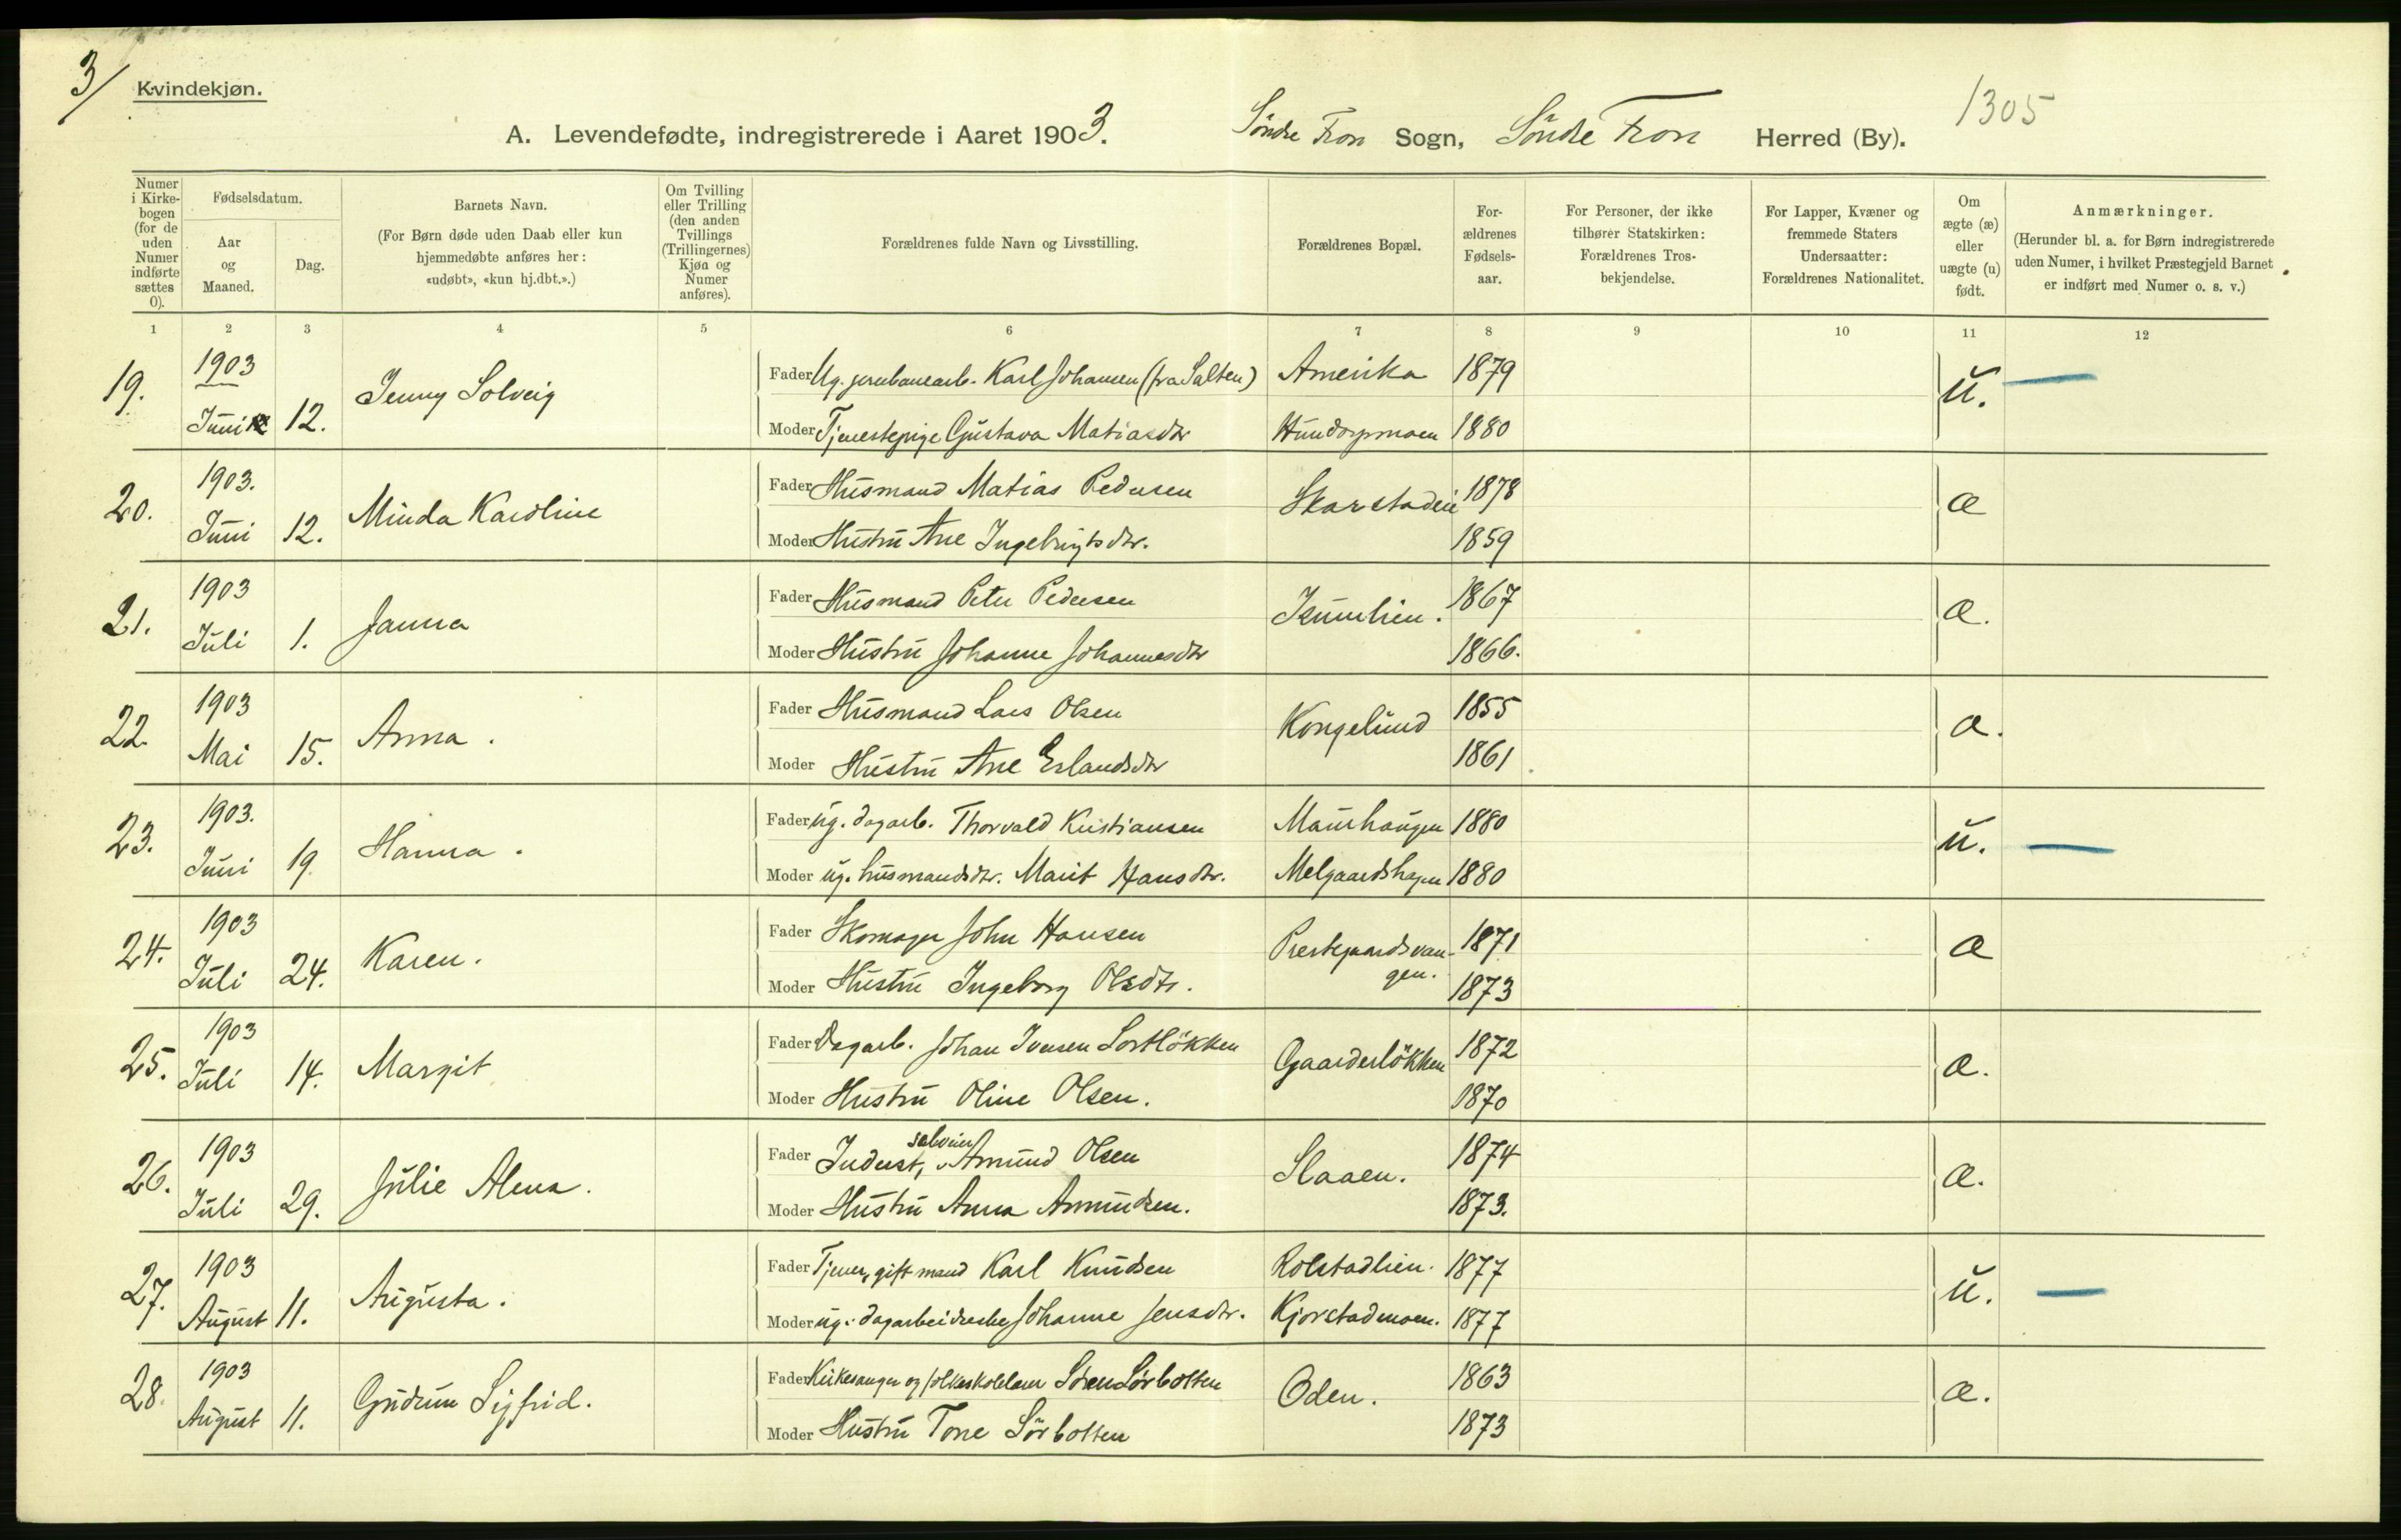 3/
Kvindekjøn.
1305
A. Levendefødte, indregistrerede i Aaret 1903. Söndre Fron Sogn, Söndre Fron Herred (By).
Numer i Kirkebogen (for de uden Numer indførte sættes 0).
Fødselsdatum.
Aar og Maaned.
Dag.
Barnets Navn.
(For Børn døde uden Daab eller kun hjemmedøbte anføres her: «udøbt», «kun hj.dbt.».)
Om Tvilling eller Trilling (den anden Tvillings (Trillingernes) Kjøn og Numer anføres).
Forældrenes fulde Navn og Livsstilling.
Forældrenes Bopæl.
Forældrenes Fødselsaar.
For Personer, der ikke tilhører Statskirken: Forældrenes Trosbekjendelse.
For Lapper, Kvæner og fremmede Staters Undersaatter: Forældrenes Nationalitet.
Om ægte (æ) eller uægte (u) født.
Anmærkninger.
(Herunder bl. a. for Børn indregistrerede uden Numer, i hvilket Præstegjeld Barnet er indført med Numer o. s. v.)
1 2 3 4 5 6 7 8 9 10 11 12
19. 1903 Juni 12. Jenny Solveig
Fader Ug. jernbanearb. Karl Johansen (fra Salten) Amerika 1879 u.
Moder Tjenestepige Gustava Matiasdtr Hundorpmoen 1880
20. 1903. Juni 12. Minda Karoline
Fader Husmand Matias Pedersen Skarstadeie 1878 æ
Moder Hustru Ane Ingebrigtsdtr. 1859
21. 1903 Juli 1. Janna
Fader Husmand Peter Pedersen Isumlien. 1867 æ.
Moder Hustru Johanne Johannesdtr 1866.
22. 1903 Mai 15. Anna.
Fader Husmand Lars Olsen Kongelund 1855 æ.
Moder Hustru Ane Erlandsdtr 1861
23. 1903. Juni 19. Hanna.
Fader ug. dagarb. Thorvald Kristiansen Maurhaugen 1880 u.
Moder ug. husmandsdtr. Marit Hansdtr. Melgaardshagen 1880
24. 1903 Juli 24. Karen.
Fader Skomager John Hansen Prestegaardsvangen. 1871 æ
Moder Hustru Ingeborg Olsdtr. 1873
25. 1903 Juli 14. Margit
Fader Dagarb. Johan Iversen Sortlökken Gaarderlökken 1872 æ.
Moder Hustru Oline Olsen. 1870
26. 1903 Juli 29. Julie Alena.
Fader Inderst, Amund Olsen Slaaen. 1874 æ.
Moder Hustru Anna Amundsen. 1873.
27. 1903 August 11. Augusta.
Fader Tjener, gift mand Karl Knudsen Rolstadlien. 1877 u.
Moder ug. dagarbeiderske Johanne Jensdtr. Kjorstadmoen. 1877
28. 1903 August 11. Gudrun Sigfrid.
Fader Kirkesanger og folkeskolelærer Sören Sörbotten Oden. 1863 æ.
Moder Hustru Tone Sörbotten 1873